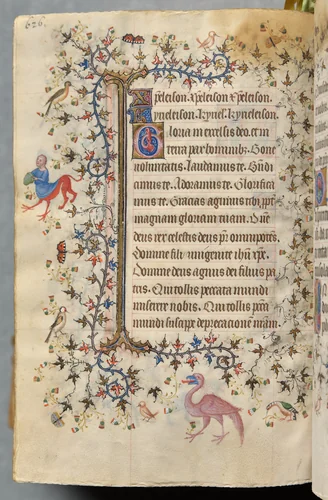 xpeleison. xpeleison. xpeleison.
kyrieleison. kyriel. kyrieleison
Gloria in excelsis deo. et in
terra pax hominib; bone
voluntatis. Laudamus te. Bndi
camus te. Adoramus te. Glorifica
mus te. Gracias agimus tibi ppt
magnam gloriam tuam. Dne
deus rex celestis deus pr omnipotes.
Domine fili unigenite ihu xpe.
Domine deus agnus dei filius pa
tris. Qui tollis peccata mundi
miserere nobis. Qui tollis pccta
mundi suscipe deprecacione nram.